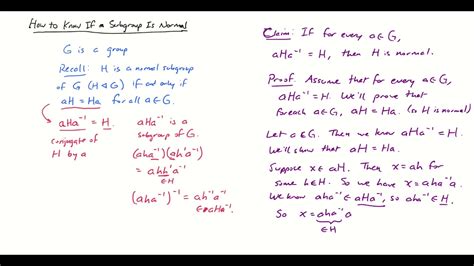 How to Know If a Subgroup Is Normal
G is a group
Recall: H is a normal subgroup
of G (H ◁ G) if and only if
aH = Ha for all a ∈ G.
aHa⁻¹ = H.
conjugate of
H by a
aHa⁻¹ is a
subgroup of G.
(aha⁻¹)(ah'a⁻¹)
= ahh'a⁻¹
∈H
(aha⁻¹)⁻¹ = ah⁻¹a⁻¹
∈ aHa⁻¹.
Claim: If for every a ∈ G,
aHa⁻¹ = H, then H is normal.
Proof: Assume that for every a ∈ G,
aHa⁻¹ = H. We'll prove that
for each a ∈ G, aH = Ha. (so H is normal)
Let a ∈ G. Then we know aHa⁻¹ = H.
We'll show that aH = Ha.
Suppose x ∈ aH. Then x = ah for
some h ∈ H. So we have x = aha⁻¹a.
We know aha⁻¹ ∈ aHa⁻¹, so aha⁻¹ ∈ H.
So x = aha⁻¹a
∈H